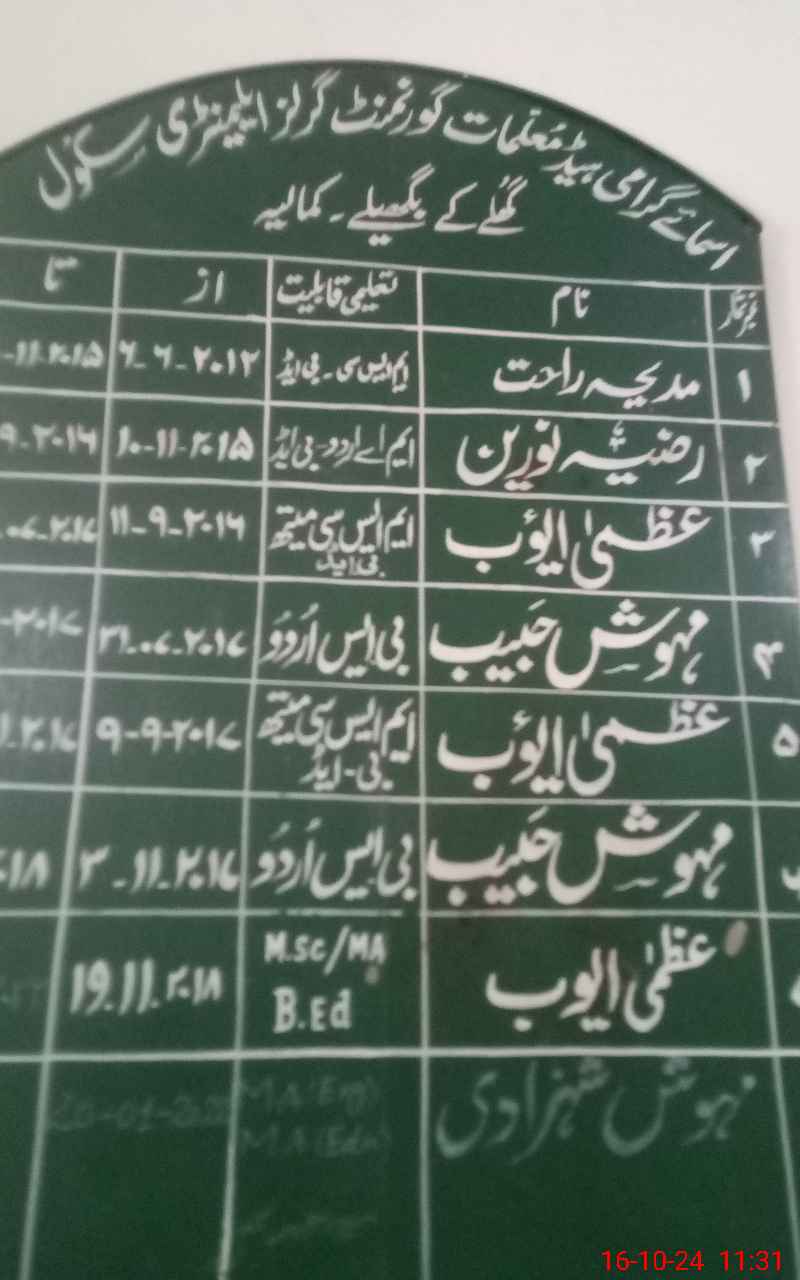 اسمائے گرامی ہیڈ معلمات گورنمنٹ گرلز ایلیمنٹری سکول
گھلے کے بگھیلے۔ کمالیہ
نمبر شمار نام تعلیمی قابلیت از تا
۱ مدیحہ راحت ایم ایس سی۔ بی ایڈ ۶-۶-۲۰۱۲ -۱۱-۲۰۱۵
۲ رضیہ نورین ایم اے اردو۔ بی ایڈ ۱۰-۱۱-۲۰۱۵ ۹-۲۰۱۶
۳ عظمیٰ ایوب ایم ایس سی میتھ ۱۱-۹-۲۰۱۶ ۰۷-۲۰۱۷
بی ایڈ
۴ مہوش حبیب بی ایس اُردُو ۳۱-۰۷-۲۰۱۷ -۲۰۱۷
۵ عظمیٰ ایوب ایم ایس سی میتھ ۹-۹-۲۰۱۷ ۲۰۱۷
بی۔ ایڈ
مہوش حبیب بی ایس اُردُو ۳-۱۱-۲۰۱۷ ۰۱۸
عظمیٰ ایوب M.Sc/MA 19.11.۲۰۱۸
B.Ed
مہوش شہزادی M.A(Eng)
M.A(Edu)
16-10-24 11:31